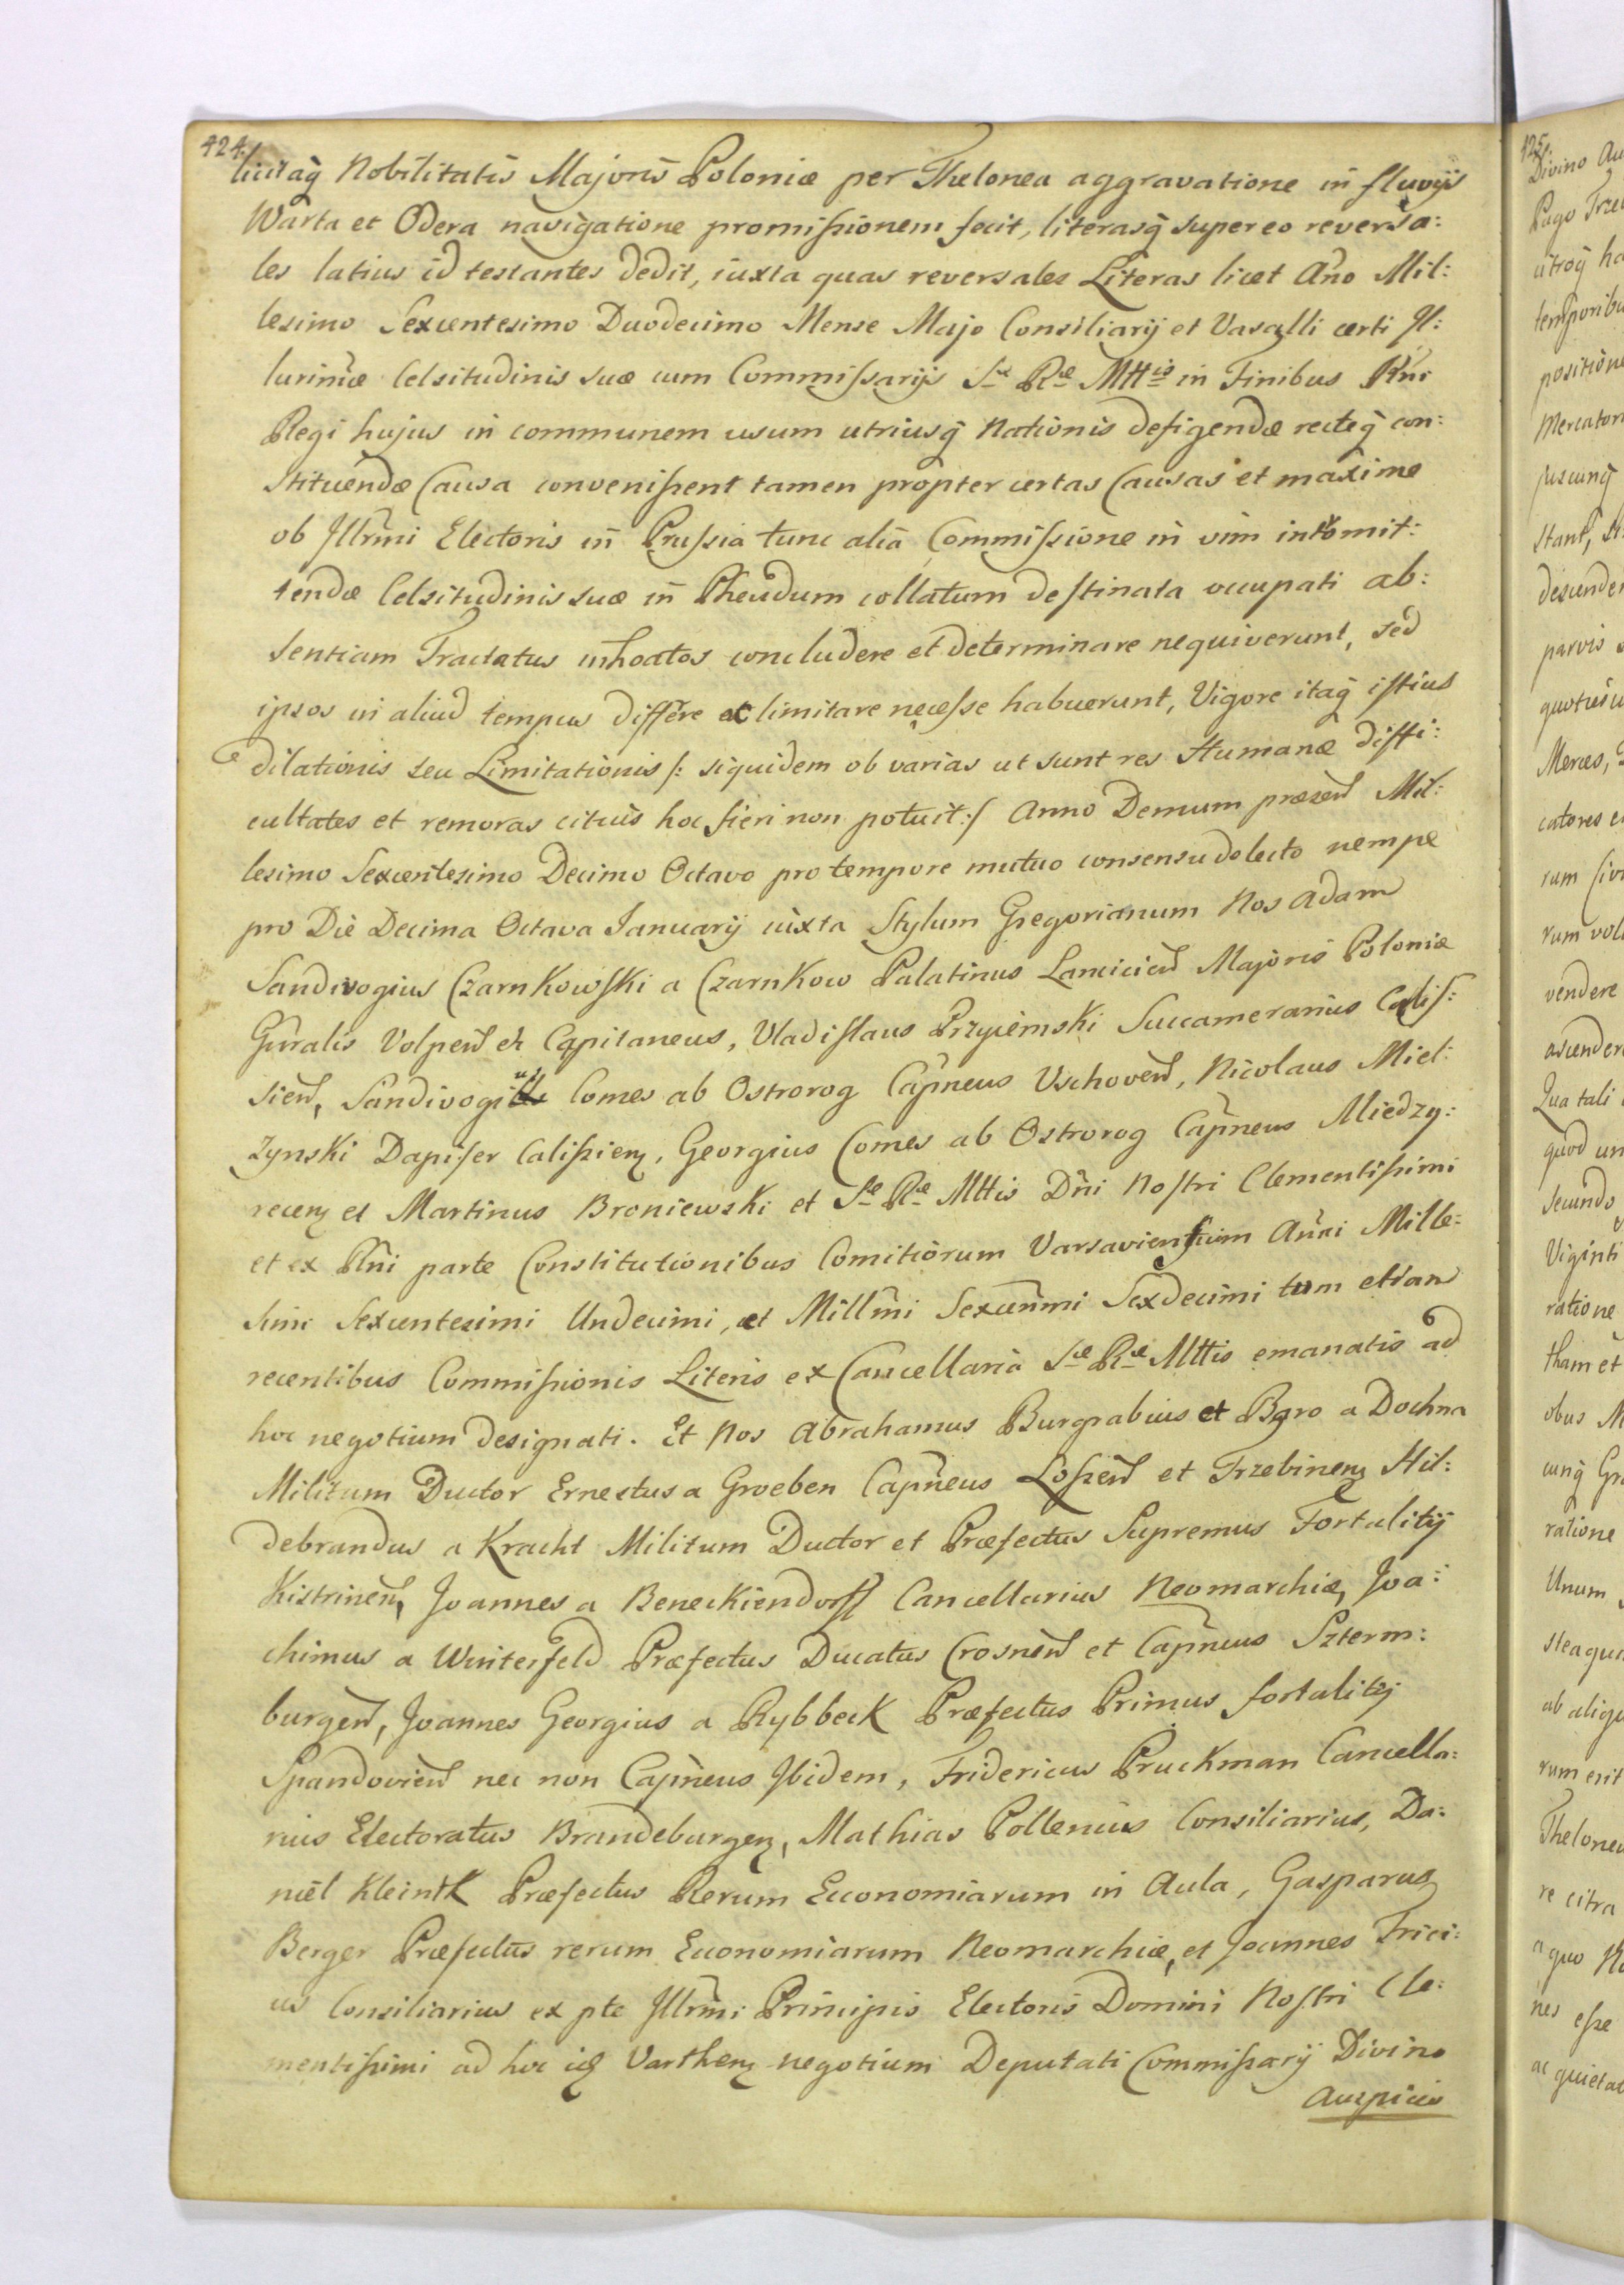 424.
licitaq̃ Nobilitatis Majoris Poloniæ per Thelonea aggravatione in fluvijs
Warta et Odera navigatione promissionem fecit, literasq̃ super eo reversa:
les latius id testantes dedit, iuxta quas reversales Literas licet Año Mil:
lesimo Sexcentesimo Duodecimo Mense Majo Consiliarij et Vasalli certi Il:
lurimæ Celsitudinis suæ cum Commissarijs Sæ Ræ Mttis in Finibus Rñi
Regi hujus in communem usum utriusq̃ Nationis defigendæ recteq̃ con:
stituendæ Causa convenissent tamen propter certas Causas et maxime
ob Illrm̃i Electoris in Prussia tunc alia Commissione in vim intromit:
tendæ Celsitudinis suæ in Pheudum collatum destinata occupati ab:
sentiam Tractatus inhoatos concludere et determinare nequiverunt, sed
ipsos in aliud tempus differe ac limitare necesse habuerunt, Vigore itaq̃ istius
dilationis seu Limitationis /: siquidem ob varias ut sunt res Humanæ diffi:
cultates et remoras citius hoc fieri non potuit :/ Anno Demum præsen̄ Mil:
lesimo Sexcentesimo Decimo Octavo pro tempore mutuo consensu delecto nempe
pro Die Decima Octava Januarij iuxta Stylum Gregorianum Nos Adam
Sandivogius Czarnkowski a Czarnkow Palatinus Lanicicen̄ Majoris Poloniæ
Gñralis Volpen̄ et Capitaneus, Vladislaus Przyiemski Succamerarius Calis:
sien̄, Sandivogius Comes ab Ostrorog Capñeus Vschoven̄, Nicolaus Miel:
zynski Dapifer Calissien̄, Georgius Comes ab Ostrorog Capñeus Miedzy:
recen̄ et Martinus Broniewski et Sæ Ræ Mttis Dñi Nostri Clementissimi
et ex Rñi parte Constitutionibus Comitiorum Varsaviensium Añni Mille:
simi Sexcentesimi Undecimi, et Millm̃i Sexcenm̃i Sexdecimi tum etiam
recentibus Commissionis Literis ex Cancellaria Sæ Ræ Mttis emanatis ad
hoc negotium designati. Et Nos Abrahamus Burgrabius et Baro a Dochna
Militum Ductor Ernestus a Groeben Capñeus Lossen̄ et Trzebinen̄ Hil:
debrandus a Kracht Militum Ductor et Præfectus Supremus Fortalitij
Kistrinen̄, Joannes a Beneckiendorff Cancellarius Neomarchiæ, Joa:
chimus a Winterfeld Præfectus Ducatus Crosnen̄ et Capñeus Szterm:
burgen̄, Joannes Georgius a Rybbeck Præfectus Primus fortalitij
Spandovien̄ nec non Capñeus Ibidem, Fridericus Pruckman Cancella:
rius Electoratus Brandeburgen̄, Mathias Pollenius Consiliarius, Da:
niel Kleintk Præfectus Rerum Economiarum in Aula, Gasparus
Berger Præfectus rerum Economiarum Neomarchiæ, et Joannes Frici:
us Consiliarius ex pte Illrm̃i Principis Electoris Domini Nostri Cle:
mentissimi ad hoc Varthen̄ negotium Deputati Commissarij Divino
Auspicio
425.
Divino
Pago
utroq̃
positione
stant,
parvis
Merces,
vendere
Qua tali
quod
secundo
Viginti
ratione
tham et
obus
cunq̃
ratione
Unum
rum erit
re citra
a quo
esse